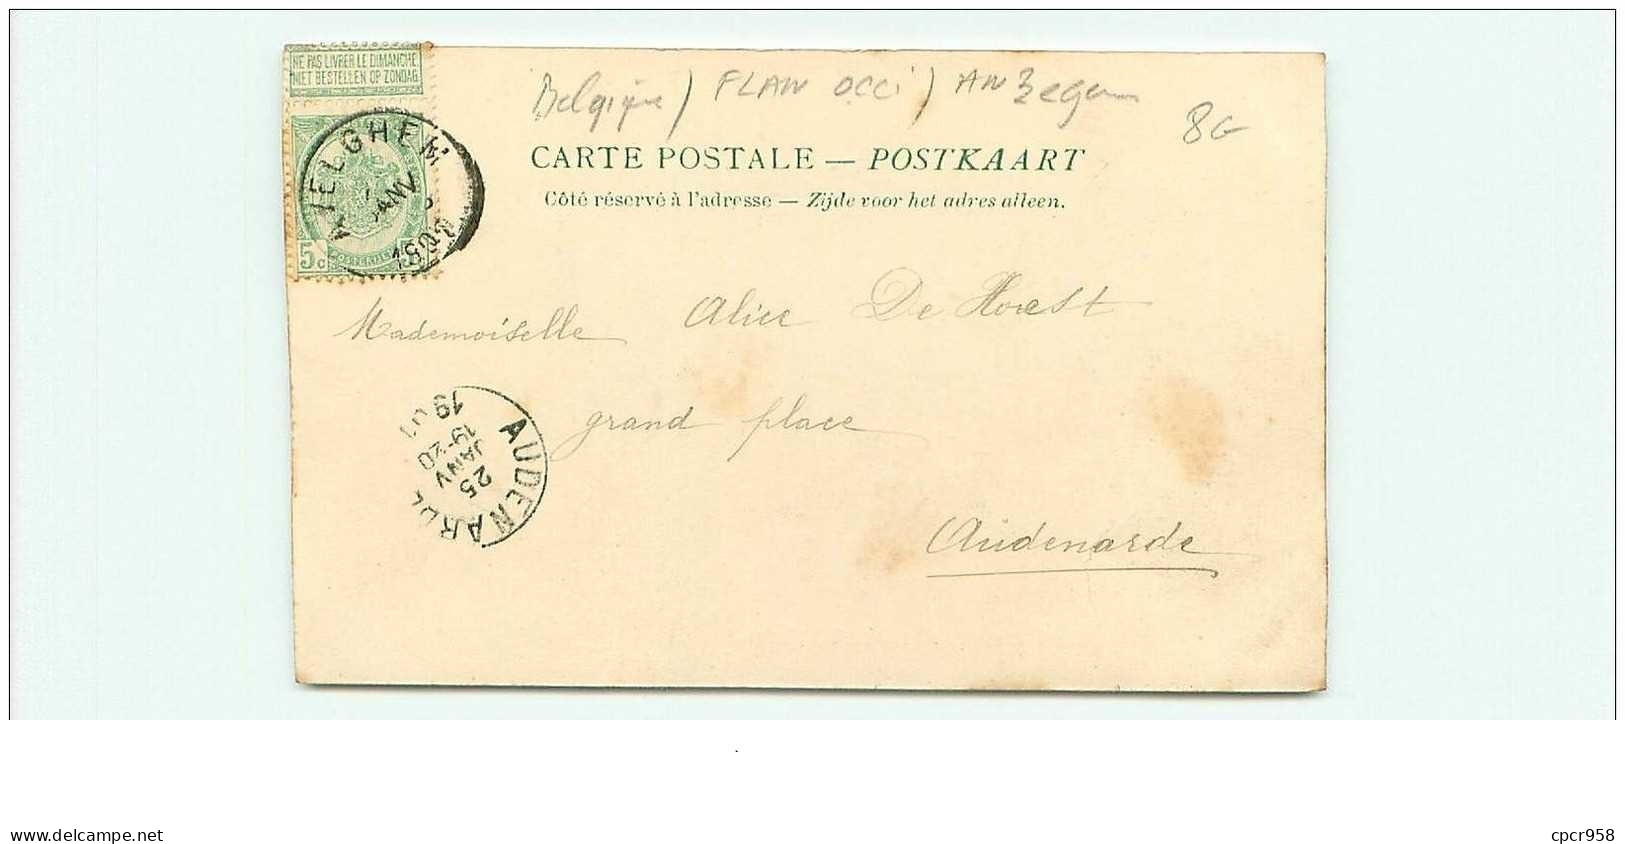 NE PAS LIVRER LE DIMANCHE
NIET BESTELLEN OP ZONDAG
Belgique / FLAN OCCI / ANZegem
8G
AVELGHEM
JANV
5c
CARTE POSTALE — POSTKAART
Côté réservé à l'adresse — Zijde voor het adres alleen.
Mademoiselle Alice De Horst
grand place
Audenarde
AUDENARDE
25
JANV
19-20
1901
www.delcampe.net
cpcr958